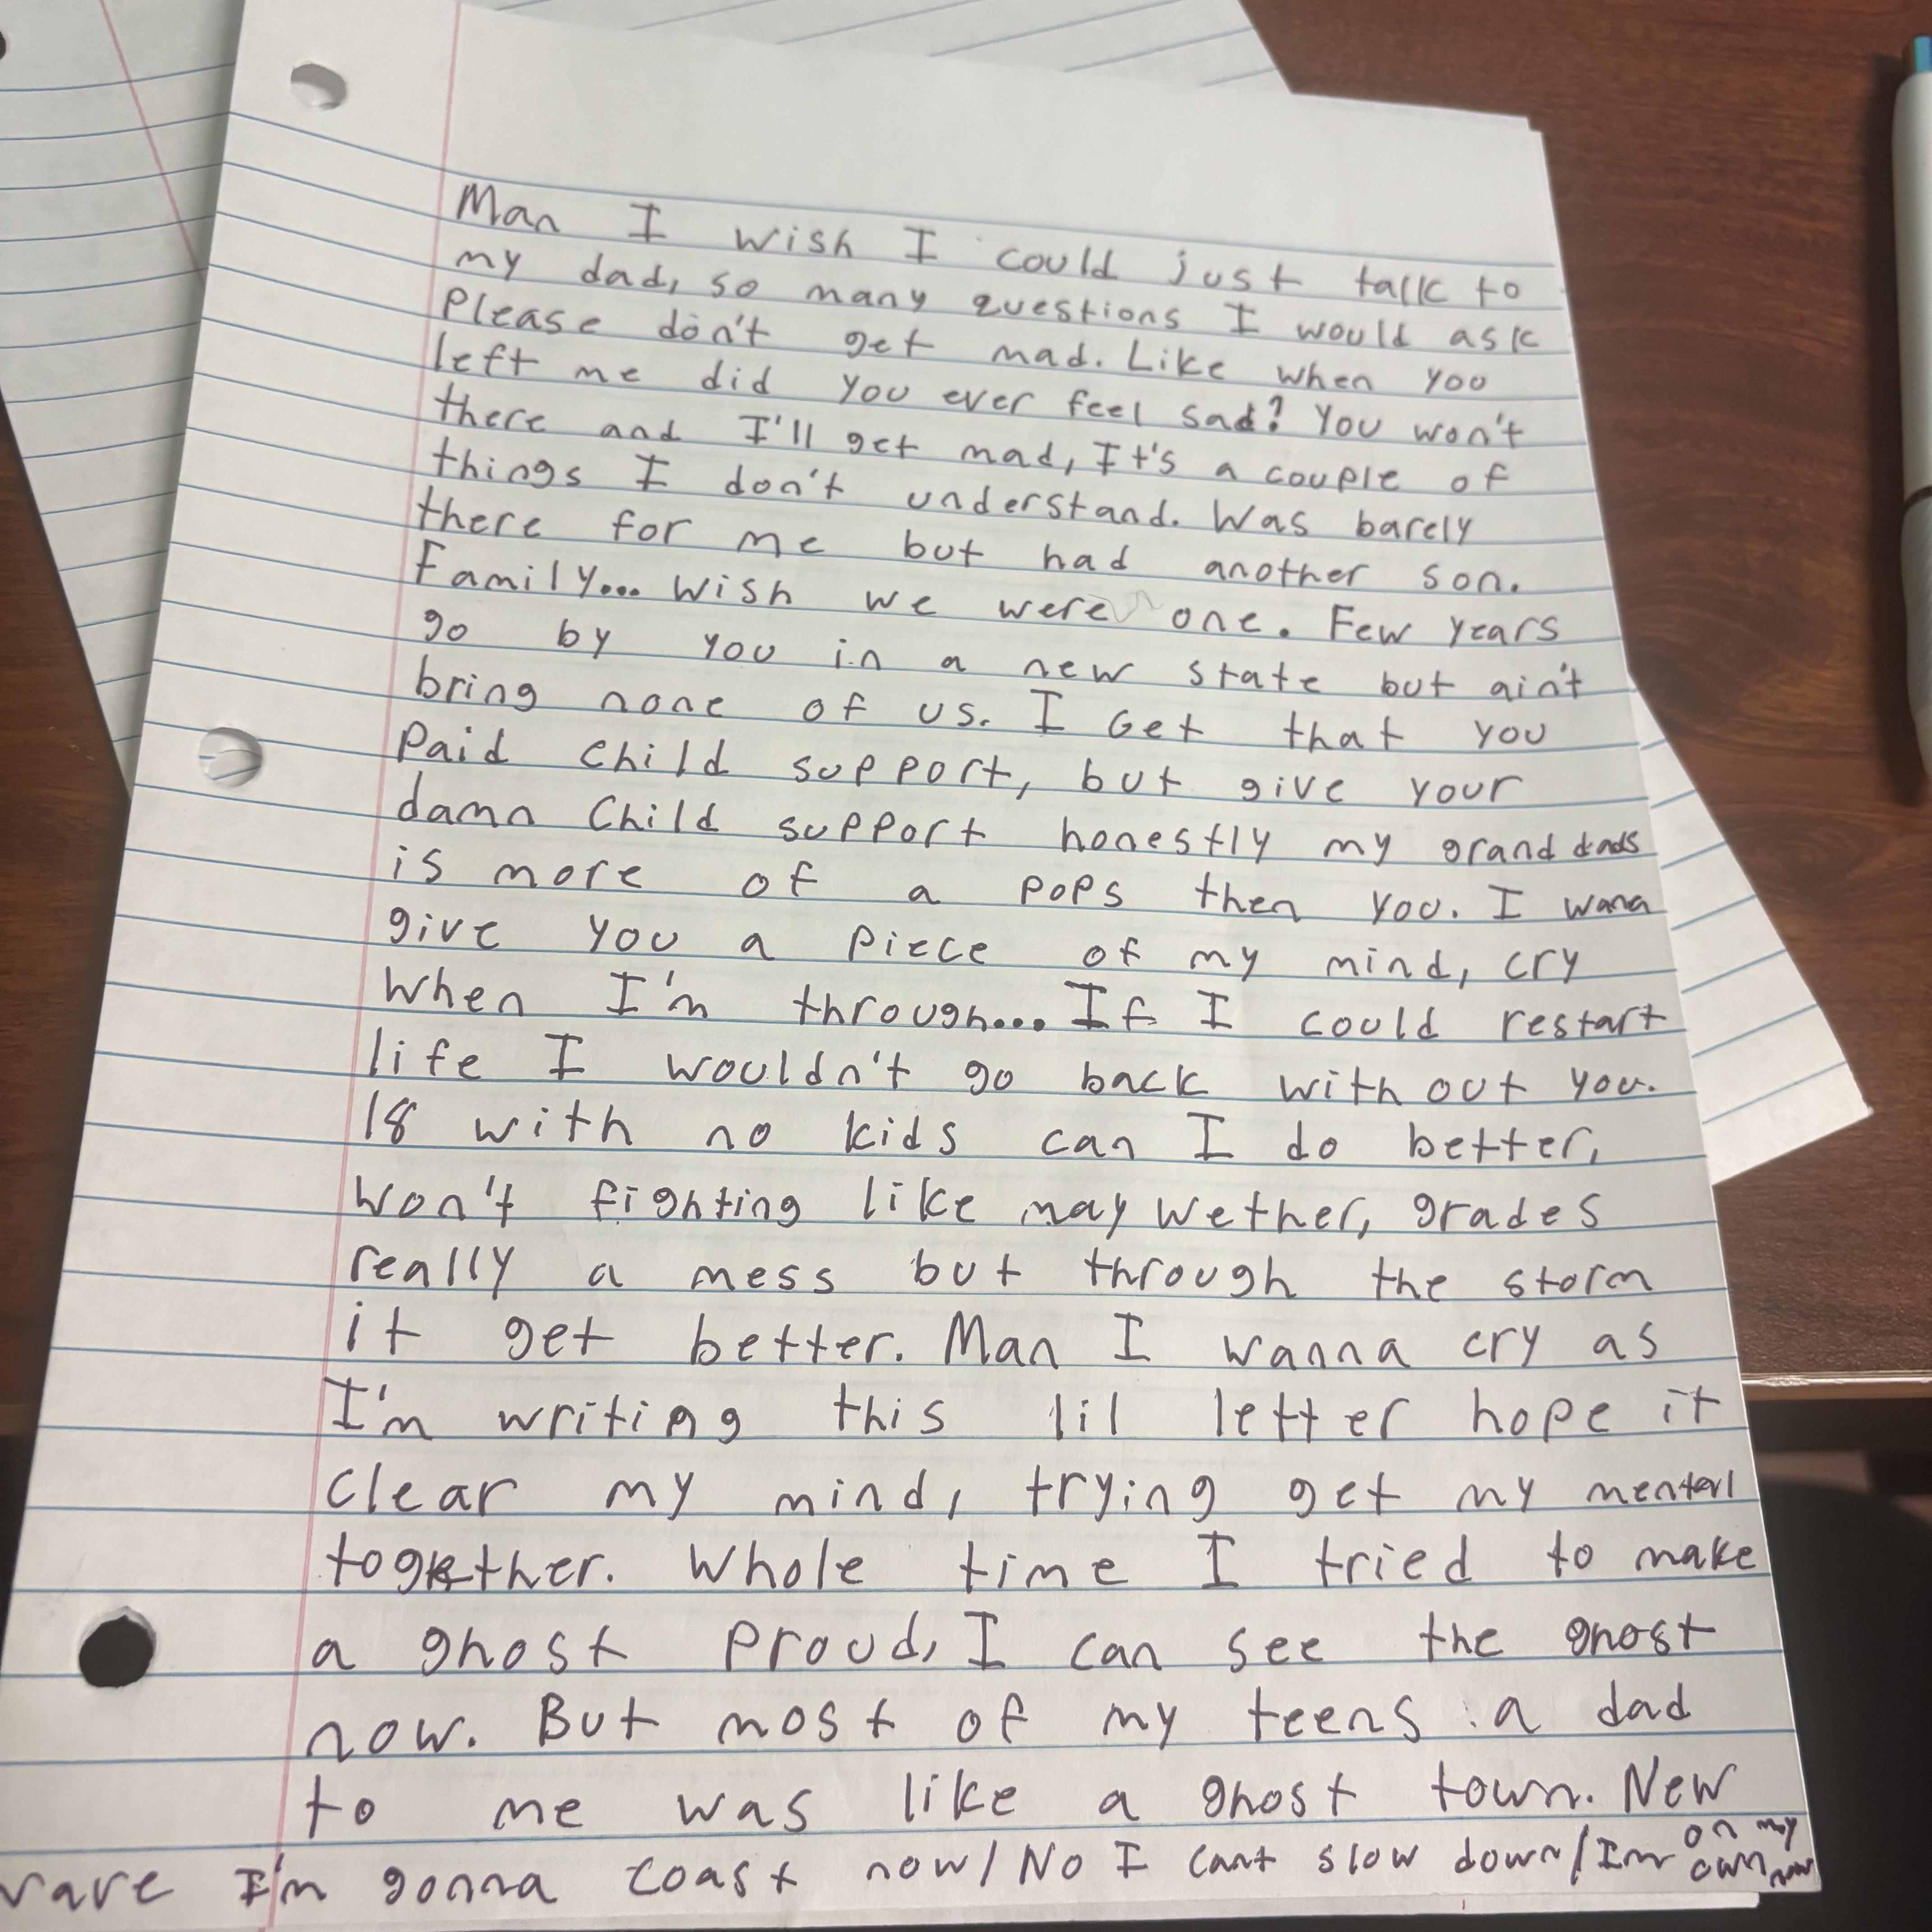 Man I wish I could just talk to
my dad, so many questions I would ask
Please don't get mad. Like when you
left me did you ever feel sad? You won't
there and I'll get mad, It's a couple of
things I don't understand. Was barely
there for me but had another son.
Family... Wish we were one. Few years
go by you in a new state but ain't
bring none of us. I Get that you
Paid Child support, but give your
damn Child support honestly my grand dads
is more of a pops then you. I wana
give you a piece of my mind, cry
When I'm through... If I could restart
life I wouldn't go back with out you.
18 with no kids can I do better,
Won't fighting like may wether, grades
really a mess but through the storm
it get better. Man I wanna cry as
I'm writing this lil letter hope it
Clear my mind, trying get my mentarl
together. Whole time I tried to make
a ghost proud, I can see the ghost
now. But most of my teens a dad
to me was like a ghost town. New
I'm gonna coast now/ No I cant slow down/ Im on my own now